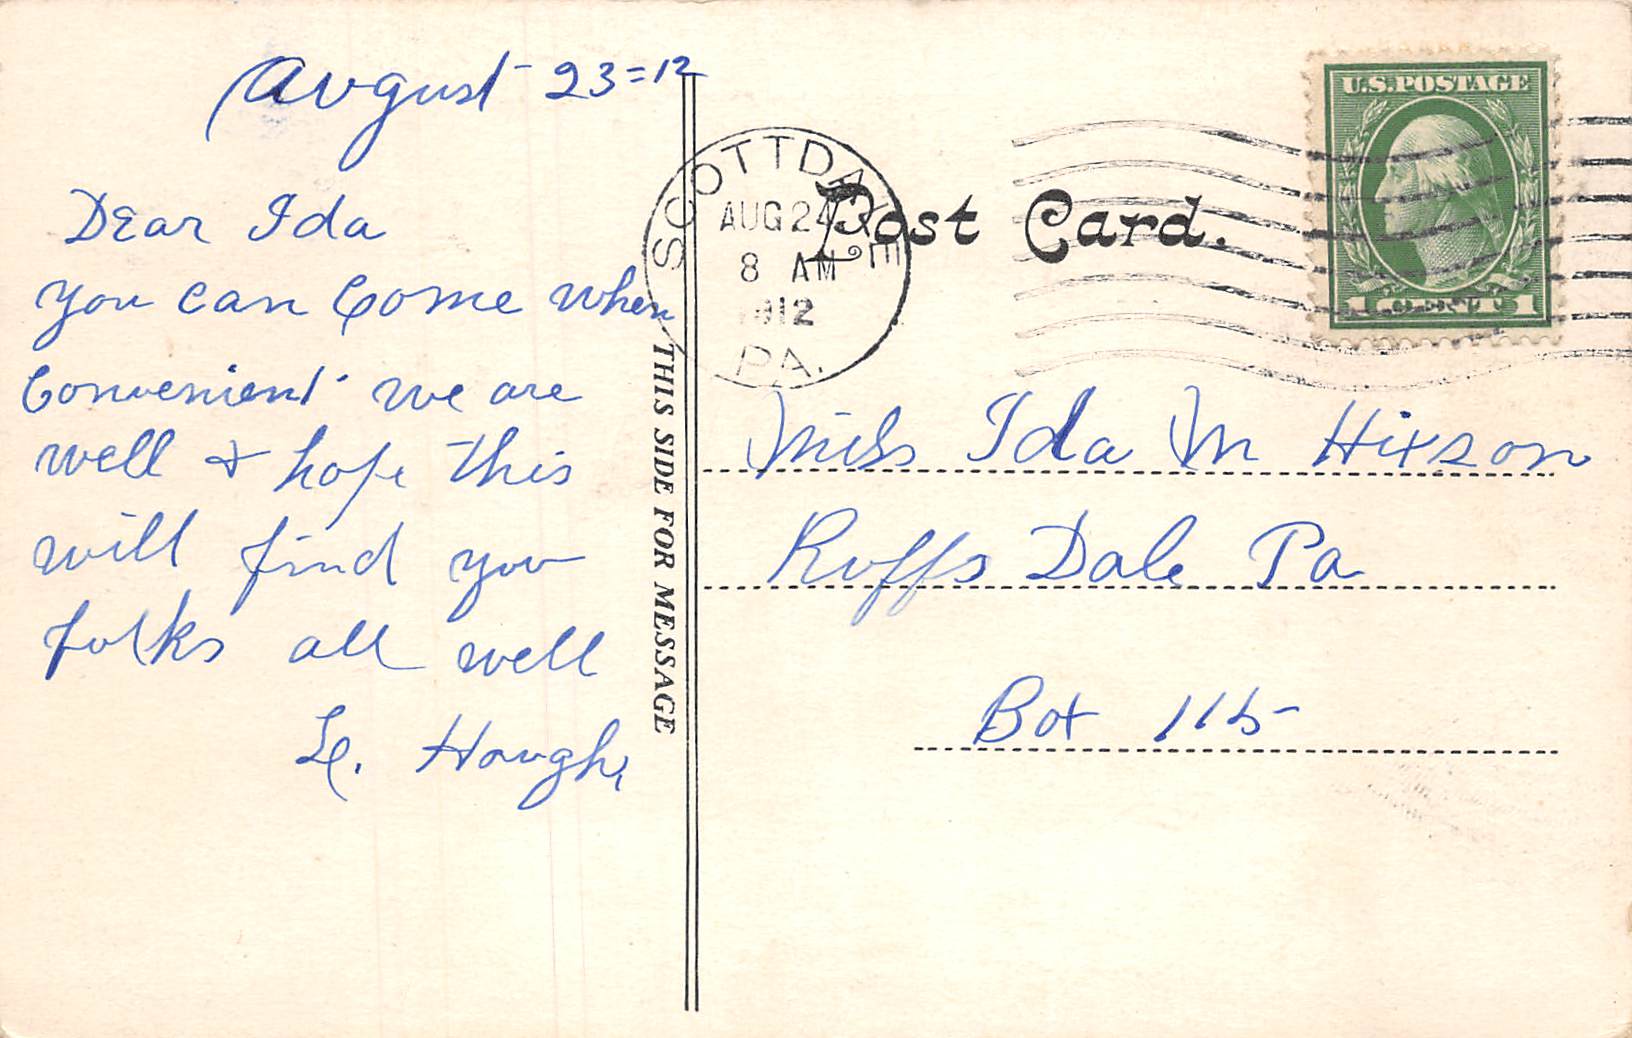 August 23=12
Dear Ida
you can Come when
Convenient we are
well & hope this
will find you
folks all well
Hough,
THIS SIDE FOR MESSAGE
SCOTTDALE
AUG 24
8 AM
1912
PA.
Post Card.
U.S.POSTAGE
1 1
Miss Ida M Hixson
Ruffs Dale Pa
Box 115